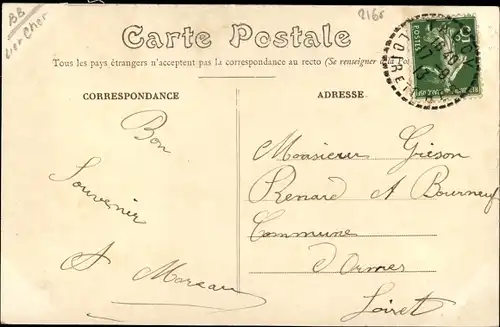 BB
ver Cher
2165
Carte Postale
Tous les pays étrangers n'acceptent pas la correspondance au recto (Se renseigner à la Pos
CORRESPONDANCE
ADRESSE
Bon
Souvenir
A Moreau
Monsieur Grieson
Renard A Bourneuf
Commune
d'Ormes
Loiret
POSTES
LOIRET